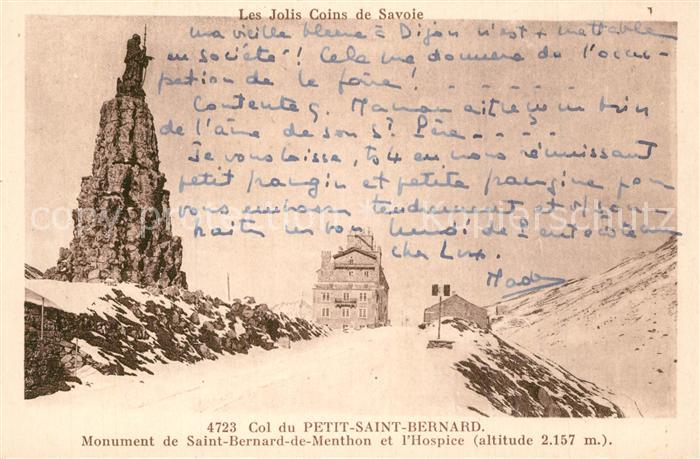 Les Jolis Coins de Savoie
ma vieille bleue à Dijon n'est + mettable
en société ! Cela me donnera de l'occu-
pation de le faire !
Contente Maman ait reçu un brin
de l'âne de son St Père
Je vous laisse, en nous réunissant
petit frangin et petite frangine pour
vous embrasser tendrement et
un bon lundi de Pentecôte au
cher Lux.
Mado
copyright protection © Kopierschutz
4723 Col du PETIT-SAINT-BERNARD.
Monument de Saint-Bernard-de-Menthon et l'Hospice (altitude 2.157 m.).